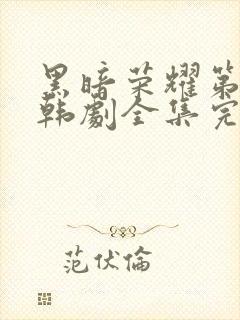 黑暗荣耀第
韩劇全集完
范伏倫